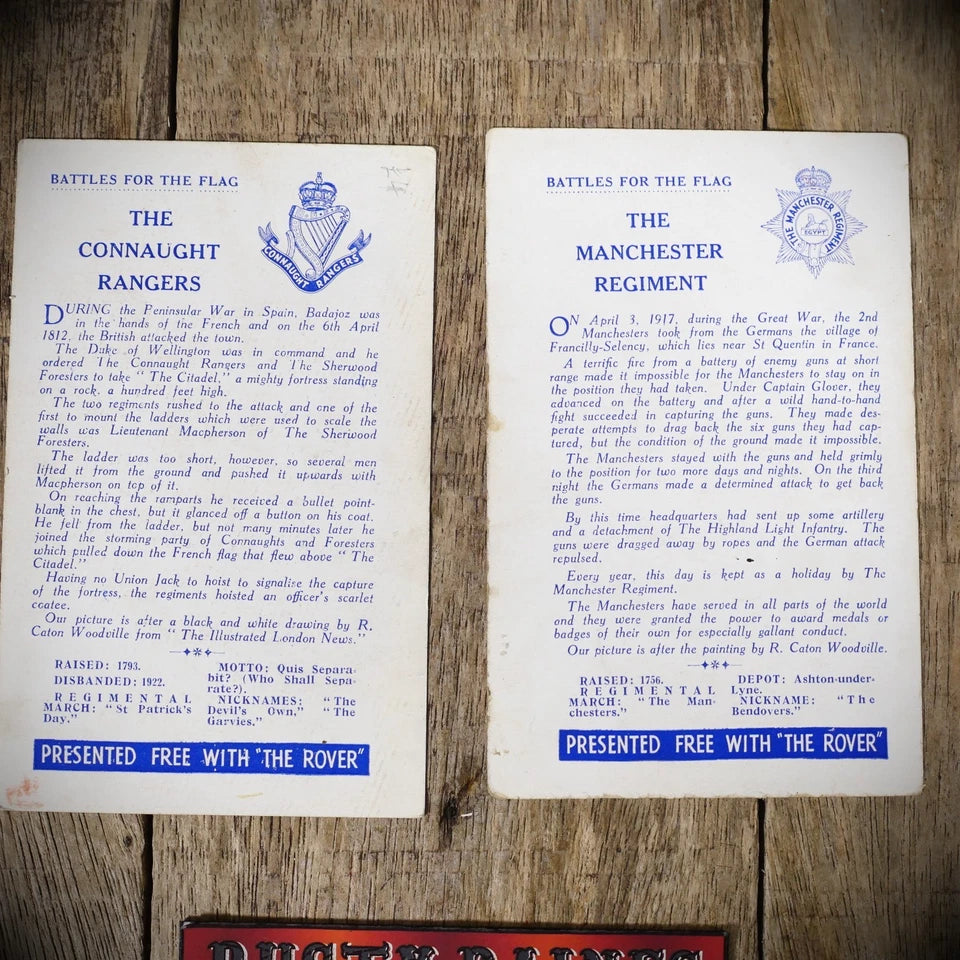 BATTLES FOR THE FLAG
THE
CONNAUGHT
RANGERS
CONNAUGHT RANGERS
DURING the Peninsular War in Spain, Badajoz was
in the hands of the French and on the 6th April
1812, the British attacked the town.
The Duke of Wellington was in command and he
ordered The Connaught Rangers and The Sherwood
Foresters to take "The Citadel," a mighty fortress standing
on a rock, a hundred feet high.
The two regiments rushed to the attack and one of the
first to mount the ladders which were used to scale the
walls was Lieutenant Macpherson of The Sherwood
Foresters.
The ladder was too short, however, so several men
lifted it from the ground and pushed it upwards with
Macpherson on top of it.
On reaching the ramparts he received a bullet point-
blank in the chest, but it glanced off a button on his coat.
He fell from the ladder, but not many minutes later he
joined the storming party of Connaughts and Foresters
which pulled down the French flag that flew above "The
Citadel."
Having no Union Jack to hoist to signalise the capture
of the fortress, the regiments hoisted an officer's scarlet
coatee.
Our picture is after a black and white drawing by R.
Caton Woodville from "The Illustrated London News."
RAISED: 1793.
DISBANDED: 1922.
REGIMENTAL
MARCH: "St Patrick's
Day."
MOTTO: Quis Separa-
bit? (Who Shall Sepa-
rate?).
NICKNAMES: "The
Devil's Own," "The
Garvies."
PRESENTED FREE WITH "THE ROVER"
BATTLES FOR THE FLAG
THE
MANCHESTER
REGIMENT
THE MANCHESTER REGIMENT
EGYPT
ON April 3, 1917, during the Great War, the 2nd
Manchesters took from the Germans the village of
Francilly-Selency, which lies near St Quentin in France.
A terrific fire from a battery of enemy guns at short
range made it impossible for the Manchesters to stay on in
the position they had taken. Under Captain Glover, they
advanced on the battery and after a wild hand-to-hand
fight succeeded in capturing the guns. They made des-
perate attempts to drag back the six guns they had cap-
tured, but the condition of the ground made it impossible.
The Manchesters stayed with the guns and held grimly
to the position for two more days and nights. On the third
night the Germans made a determined attack to get back
the guns.
By this time headquarters had sent up some artillery
and a detachment of The Highland Light Infantry. The
guns were dragged away by ropes and the German attack
repulsed.
Every year, this day is kept as a holiday by The
Manchester Regiment.
The Manchesters have served in all parts of the world
and they were granted the power to award medals or
badges of their own for especially gallant conduct.
Our picture is after the painting by R. Caton Woodville.
RAISED: 1756.
REGIMENTAL
MARCH: "The Man-
chesters."
DEPOT: Ashton-under-
Lyne.
NICKNAME: "The
Bendovers."
PRESENTED FREE WITH "THE ROVER"